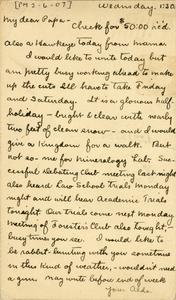 [PM 2-6-07]
Wednesday, 1:30
My dear Papa -
Check for $50.00 rec'd.
also a Hawkeye today from mama
I would like to write today but
am pretty busy working ahead to make
up the cuts I'll have to take Friday
and Saturday. It is a glorious half
holiday - bright & clear with nearly
two feet of clean snow - and I would
give a Kingdom for a walk. But
not so - me for Mineralogy Lab. Suc-
cessful Debating Club meeting last night
also heard Law School Trials Monday
night and will hear Academic Trials
tonight. Our trials come next Monday,
meeting of Forester's Club also tonight,
busy times you see. I would like to
be rabbit-hunting with you sometime
in this kind of weather, - wouldn't need
a gun. May write before end of week
Your Aldo.